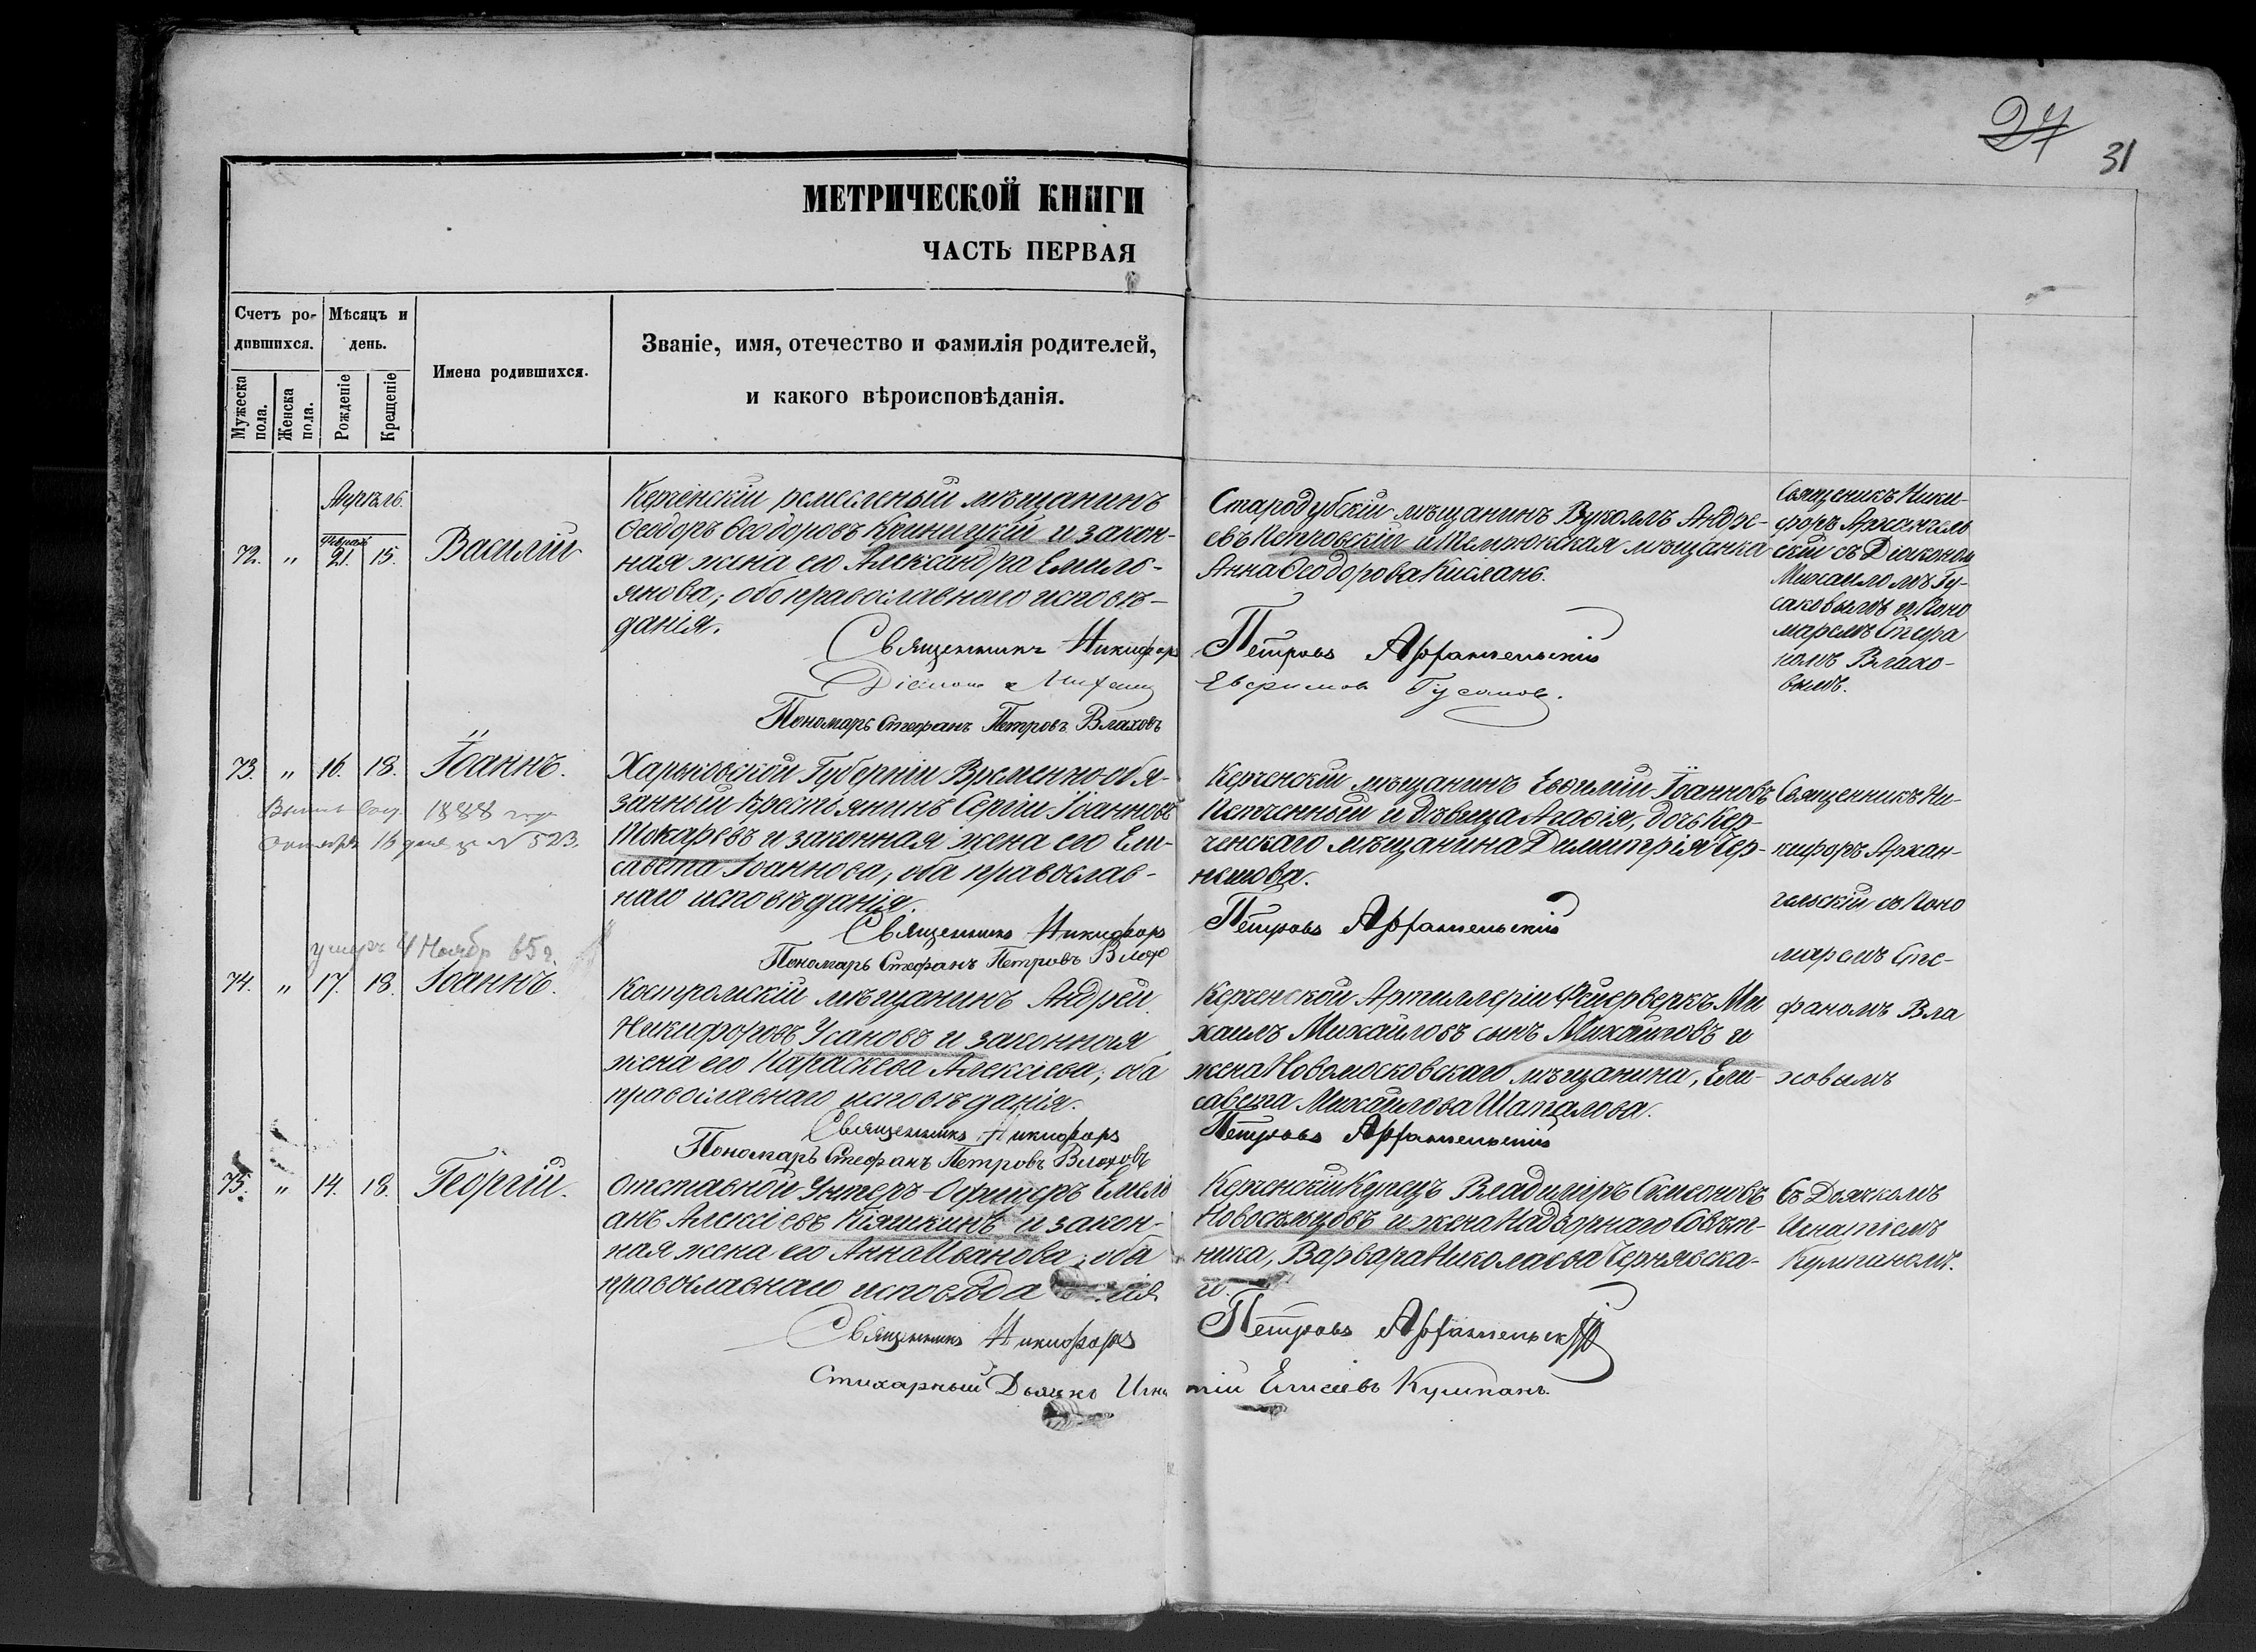 27
31
МЕТРИЧЕСКОЙ КНИГИ
ЧАСТЬ ПЕРВАЯ
Счетъ ро-
дившихся.
Мѣсяцъ и
день.
Мужеска
пола.
Женска
пола.
Рожденіе
Крещеніе
Имена родившихся.
Званіе, имя, отечество и фамилія родителей,
и какого вѣроисповѣданія.
Апрѣль.
Февраль
72. " 21. 15. Василій
Керченскій ремесленый мѣщанинъ
Ѳеодоръ Ѳеодоровъ Криницкій и закон-
ная жена его Александра Емило-
янова; обо православнаго исповѣ-
данія.
Священникъ Никифоръ
Діаконъ Михаилъ
Пономарь Стефанъ Петровъ Влаховъ
Стародубскій мѣщанинъ Вуколъ Андре-
евъ Петровскій и Темрюкская мѣщанка
Анна Ѳеодорова Кислянь.
Петровъ Архангельскій
Евфимовъ Гусаковъ.
Священикъ Ники-
форъ Архангель
скій съ Діакономъ
Михаиломъ Гу-
саковымъ и Поно
маремъ Стефа
номъ Влахо-
вымъ.
73. " 16. 18. Іоаннъ.
1888 года
Октября 16 дня за № 523.
Харьковской Губерніи Временно-обя-
занный крестьянинъ Сергій Іоанновъ
Токаревъ и законная жена его Ели-
савета Іоаннова, оба православ-
наго исповѣданія.
Священникъ Никифоръ
Пономарь Стефанъ Петровъ Влахо
Керченскій мѣщанинъ Евѳимій Іоанновъ
Печенный и дѣвица Агаѳія, дочь Кер-
ченскаго мѣщанина Димитрія Чер-
нышова.
Петровъ Архангельскій
Священникъ Ни-
кифоръ Архан-
гельскій съ Поно
маремъ Сте-
фаномъ Вла
ховымъ
умеръ 4 Ноябр 65 г.
74. " 17. 18. Іоаннъ.
Костромскій мѣщанинъ Андрей
Никифоровъ Усаковъ и законная
жена его Параскева Алексіева, оба
православнаго исповѣданія.
Священникъ Никифоръ
Пономарь Стефанъ Петровъ Влаховъ
Керченской Артиллеріи Фейерверкъ Ми
хаилъ Михайловъ сынъ Михайловъ и
жена Новомосковскаго мѣщанина, Ели-
савета Михайлова Шаталова.
Петровъ Архангельскій
75. " 14. 18. Георгій.
Отставной Унтеръ-Офицеръ Емели
анъ Алексіевъ Кіяшкинъ и закон-
ная жена его Анна Иванова, оба
православнаго исповѣда нія
Священникъ Никифоръ
Стихарный Дьячекъ Игна
Керченскій Купецъ Владиміръ Симеоновъ
Новосельцовъ и жена Надворнаго Совѣт-
ника, Варвара Николаева Чернявска-
го.
Петровъ Архангельскій
тій Елисеевъ Кумпанъ.
Съ Дьячкомъ
Игнатіемъ
Кумпаномъ.